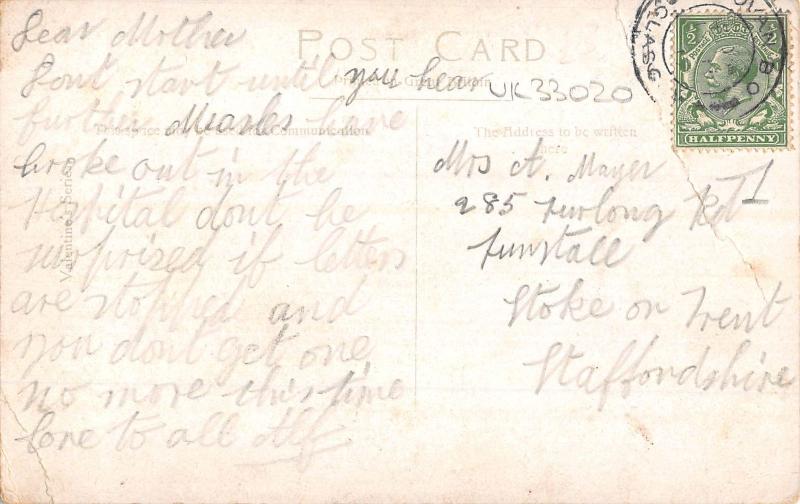 POST CARD
Dear Mother
Dont start until you hear
further Measles have
broke out in the
Hospital dont be
surprized if letters
are stopped and
you dont get one
no more this time
love to all Alf
Valentine's Series
Communication
The Address to be written
here
UK33020
Mrs A. Mayer
285 Furlong Rd
Tunstall
Stoke on Trent
Staffordshire
1
GOVAN B.O
GLASG
½ ½
HALFPENNY